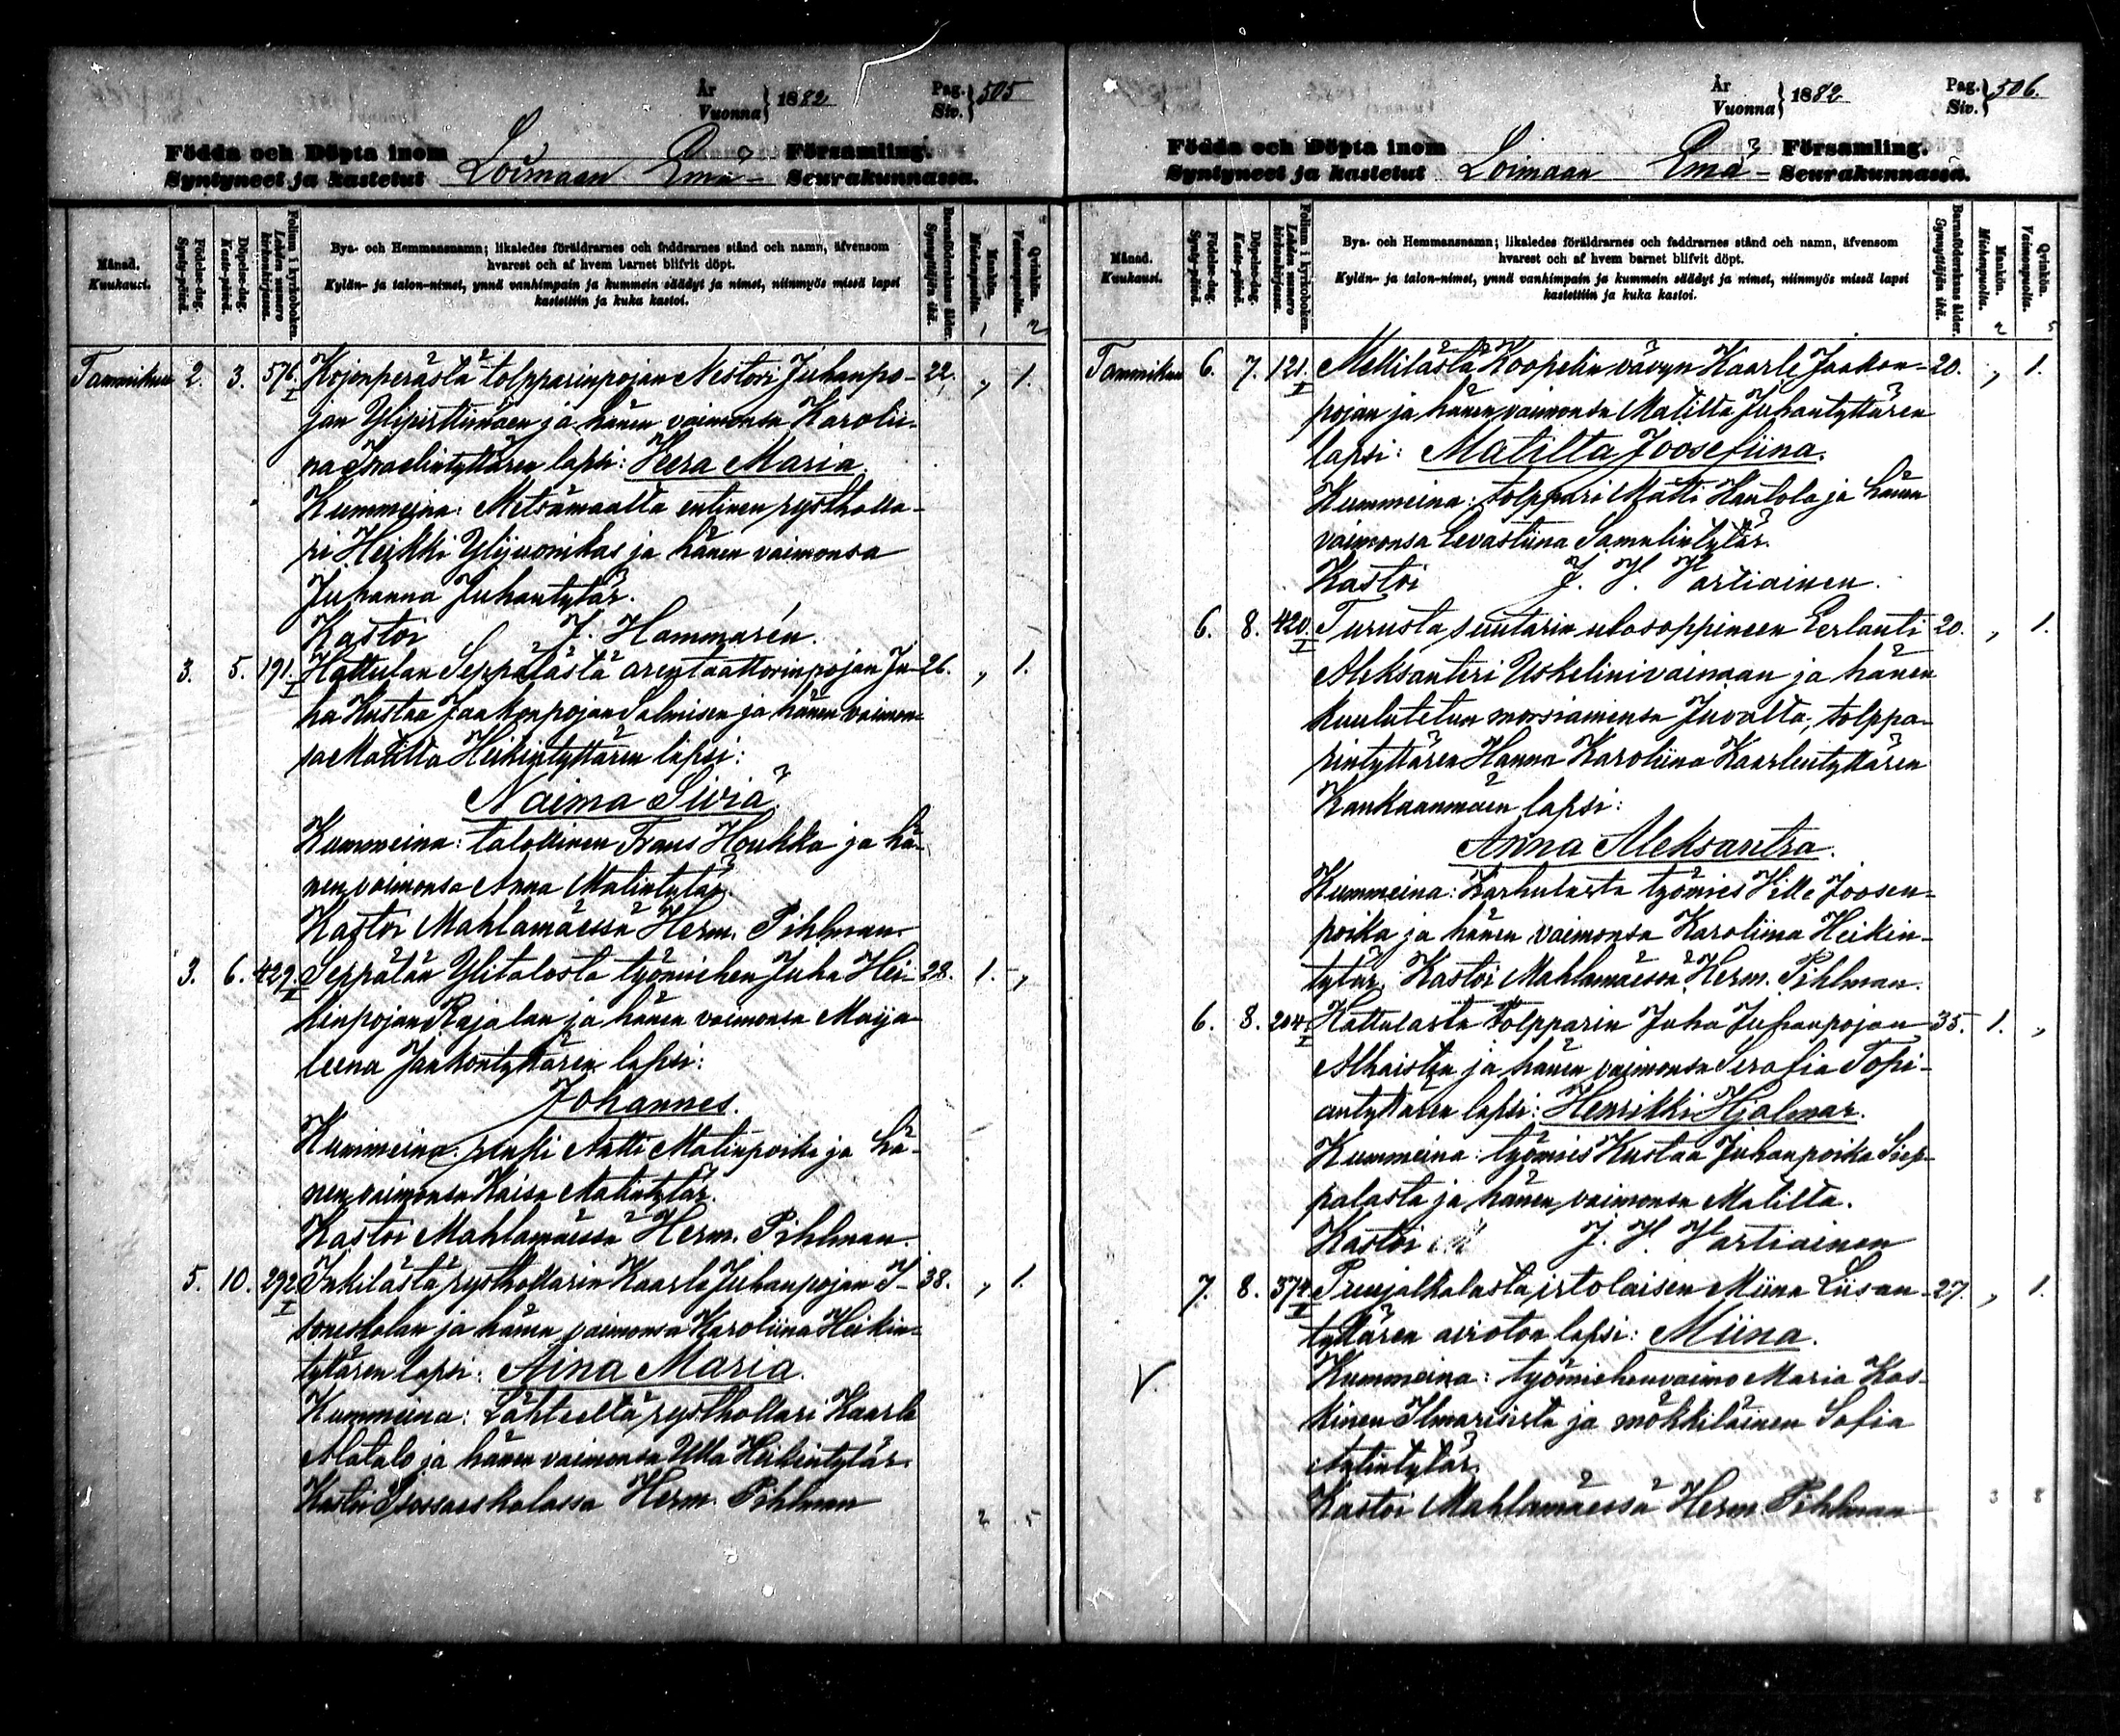 År
Vuonna } 1882
Pag.
Siv. } 505
Födda och Döpta inom Loimaan Emä- Församling.
Syntyneet ja kastetut Seurakunnassa.
Månad. Kuukausi.
Födelse-dag. Synty-päivä.
Döpelse-dag. Kaste-päivä.
Folium i kyrkoboken. Lehden numero kirkonkirjassa.
Bya- och Hemmansnamn; likaledes föräldrarnes och faddrarnes stånd och namn, äfvensom
hvarest och af hvem barnet blifvit döpt.
Kylän- ja talon-nimet, ynnä vanhimpain ja kummein säädyt ja nimet, niinmyös missä lapsi
kastettiin ja kuka kastoi.
Barnaföderskans ålder. Synnyttäjän ikä.
Mankön. Miehenpuolta. 1
Qvinkön. Vaimonpuolta. 2
Tammikuu 2. 3. 576. I Kojonperästä tolpparinpojan Nestori Juhanpo- 22. „ 1.
jan Ylipirttimäen ja hänen vaimonsa Karolii-
na Israelintyttären lapsi: Veera Maria.
Kummeina: Metsämaalta entinen rystholla-
ri Heikki Ylijuonikas ja hänen vaimonsa
Juhanna Juhantytär.
Kastoi J. Hammarén.
3. 5. 191. I Hattulan Seppälästä arentaattorinpojan Ju- 26. „ 1.
ha Kustaa Jaakonpojan Salmisen ja hänen vaimon-
sa Matilta Heikintyttären lapsi:
Naima Siviä.
Kummeina: talollinen Frans Houkka ja hä-
nen vaimonsa Anna Matintytär.
Kastoi Mahlamäessä Herm. Pihlman.
3. 6. 429. I Seppälän Ylitalosta työmiehen Juha Hei- 28. 1. „
kinpojan Rajalan ja hänen vaimonsa Maija
leena Jaakontyttären lapsi:
Johannes.
Kummeina: renki Antti Matinpoika ja hä-
nen vaimonsa Kaisa Matintytär.
Kastoi Mahlamäessä Herm. Pihlman.
5. 10. 292 I Inkilästä rysthollarin Kaarle Juhanpojan I- 38. „ 1.
soneskolan ja hänen vaimonsa Karoliina Heikin-
tytären lapsi: Aina Maria.
Kummeina: Lähteeltä rysthollari Kaarle
Alatalo ja hänen vaimonsa Ulla Heikintytär.
Kastoi Herm. Pihlman
2 5
År
Vuonna } 1882
Pag.
Siv. } 506.
Födda och Döpta inom Loimaan Emä- Församling.
Syntyneet ja kastetut Seurakunnassa.
Månad. Kuukausi.
Födelse-dag. Synty-päivä.
Döpelse-dag. Kaste-päivä.
Folium i kyrkoboken. Lehden numero kirkonkirjassa.
Bya- och Hemmansnamn; likaledes föräldrarnes och faddrarnes stånd och namn, äfvensom
hvarest och af hvem barnet blifvit döpt.
Kylän- ja talon-nimet, ynnä vanhimpain ja kummein säädyt ja nimet, niinmyös missä lapsi
kastettiin ja kuka kastoi.
Barnaföderskans ålder. Synnyttäjän ikä.
Mankön. Miehenpuolta. 2
Qvinkön. Vaimonpuolta. 5
Tammikuu 6. 7. 121. I Mellilästä Koopelin vävyn Kaarle Jaakon- 20. „ 1.
pojan ja hänen vaimonsa Matilta Juhantyttären
lapsi: Matilta Joosefiina.
Kummeina: tolppari Matti Hautola ja hänen
vaimonsa Eevastiina Samulintytär.
Kastoi J. H. Vartiainen.
6. 8. 420. I Turusta suutarin ulosoppineen Eerlanti 20. „ 1.
Aleksanteri Uskelinivainaan ja hänen
kuulutetun morsiamensa Juvalta, tolppa-
rintyttären Hanna Karoliina Kaarlentyttären
Kankaanmäen lapsi:
Anna Aleksantra.
Kummeina: Karhulasta työmies Ville Joosen-
poika ja hänen vaimonsa Karoliina Heikin-
tytär. Kastoi Mahlamäessä Herm. Pihlman.
6. 8. 204. I Hattulasta tolpparin Juha Juhanpojan 35. 1. „
Alhaisten ja hänen vaimonsa Serafia Topi-
antyttären lapsi: Henrikki Hjalmar.
Kummeina: työmies Kustaa Juhanpoika Siep-
palasta ja hänen vaimonsa Matilta.
Kastoi J. H. Vartiainen
7. 8. 374. II Puujalkalasta irtolaisen Miina Liisan- 27. „ 1.
tyttären avioton lapsi: Miina.
Kummeina: työmiehenvaimo Maria Kas-
kinen Ilmarisista ja mökkiläinen Sofia
Antintytär.
Kastoi Mahlamäessä Herm. Pihlman
3 8